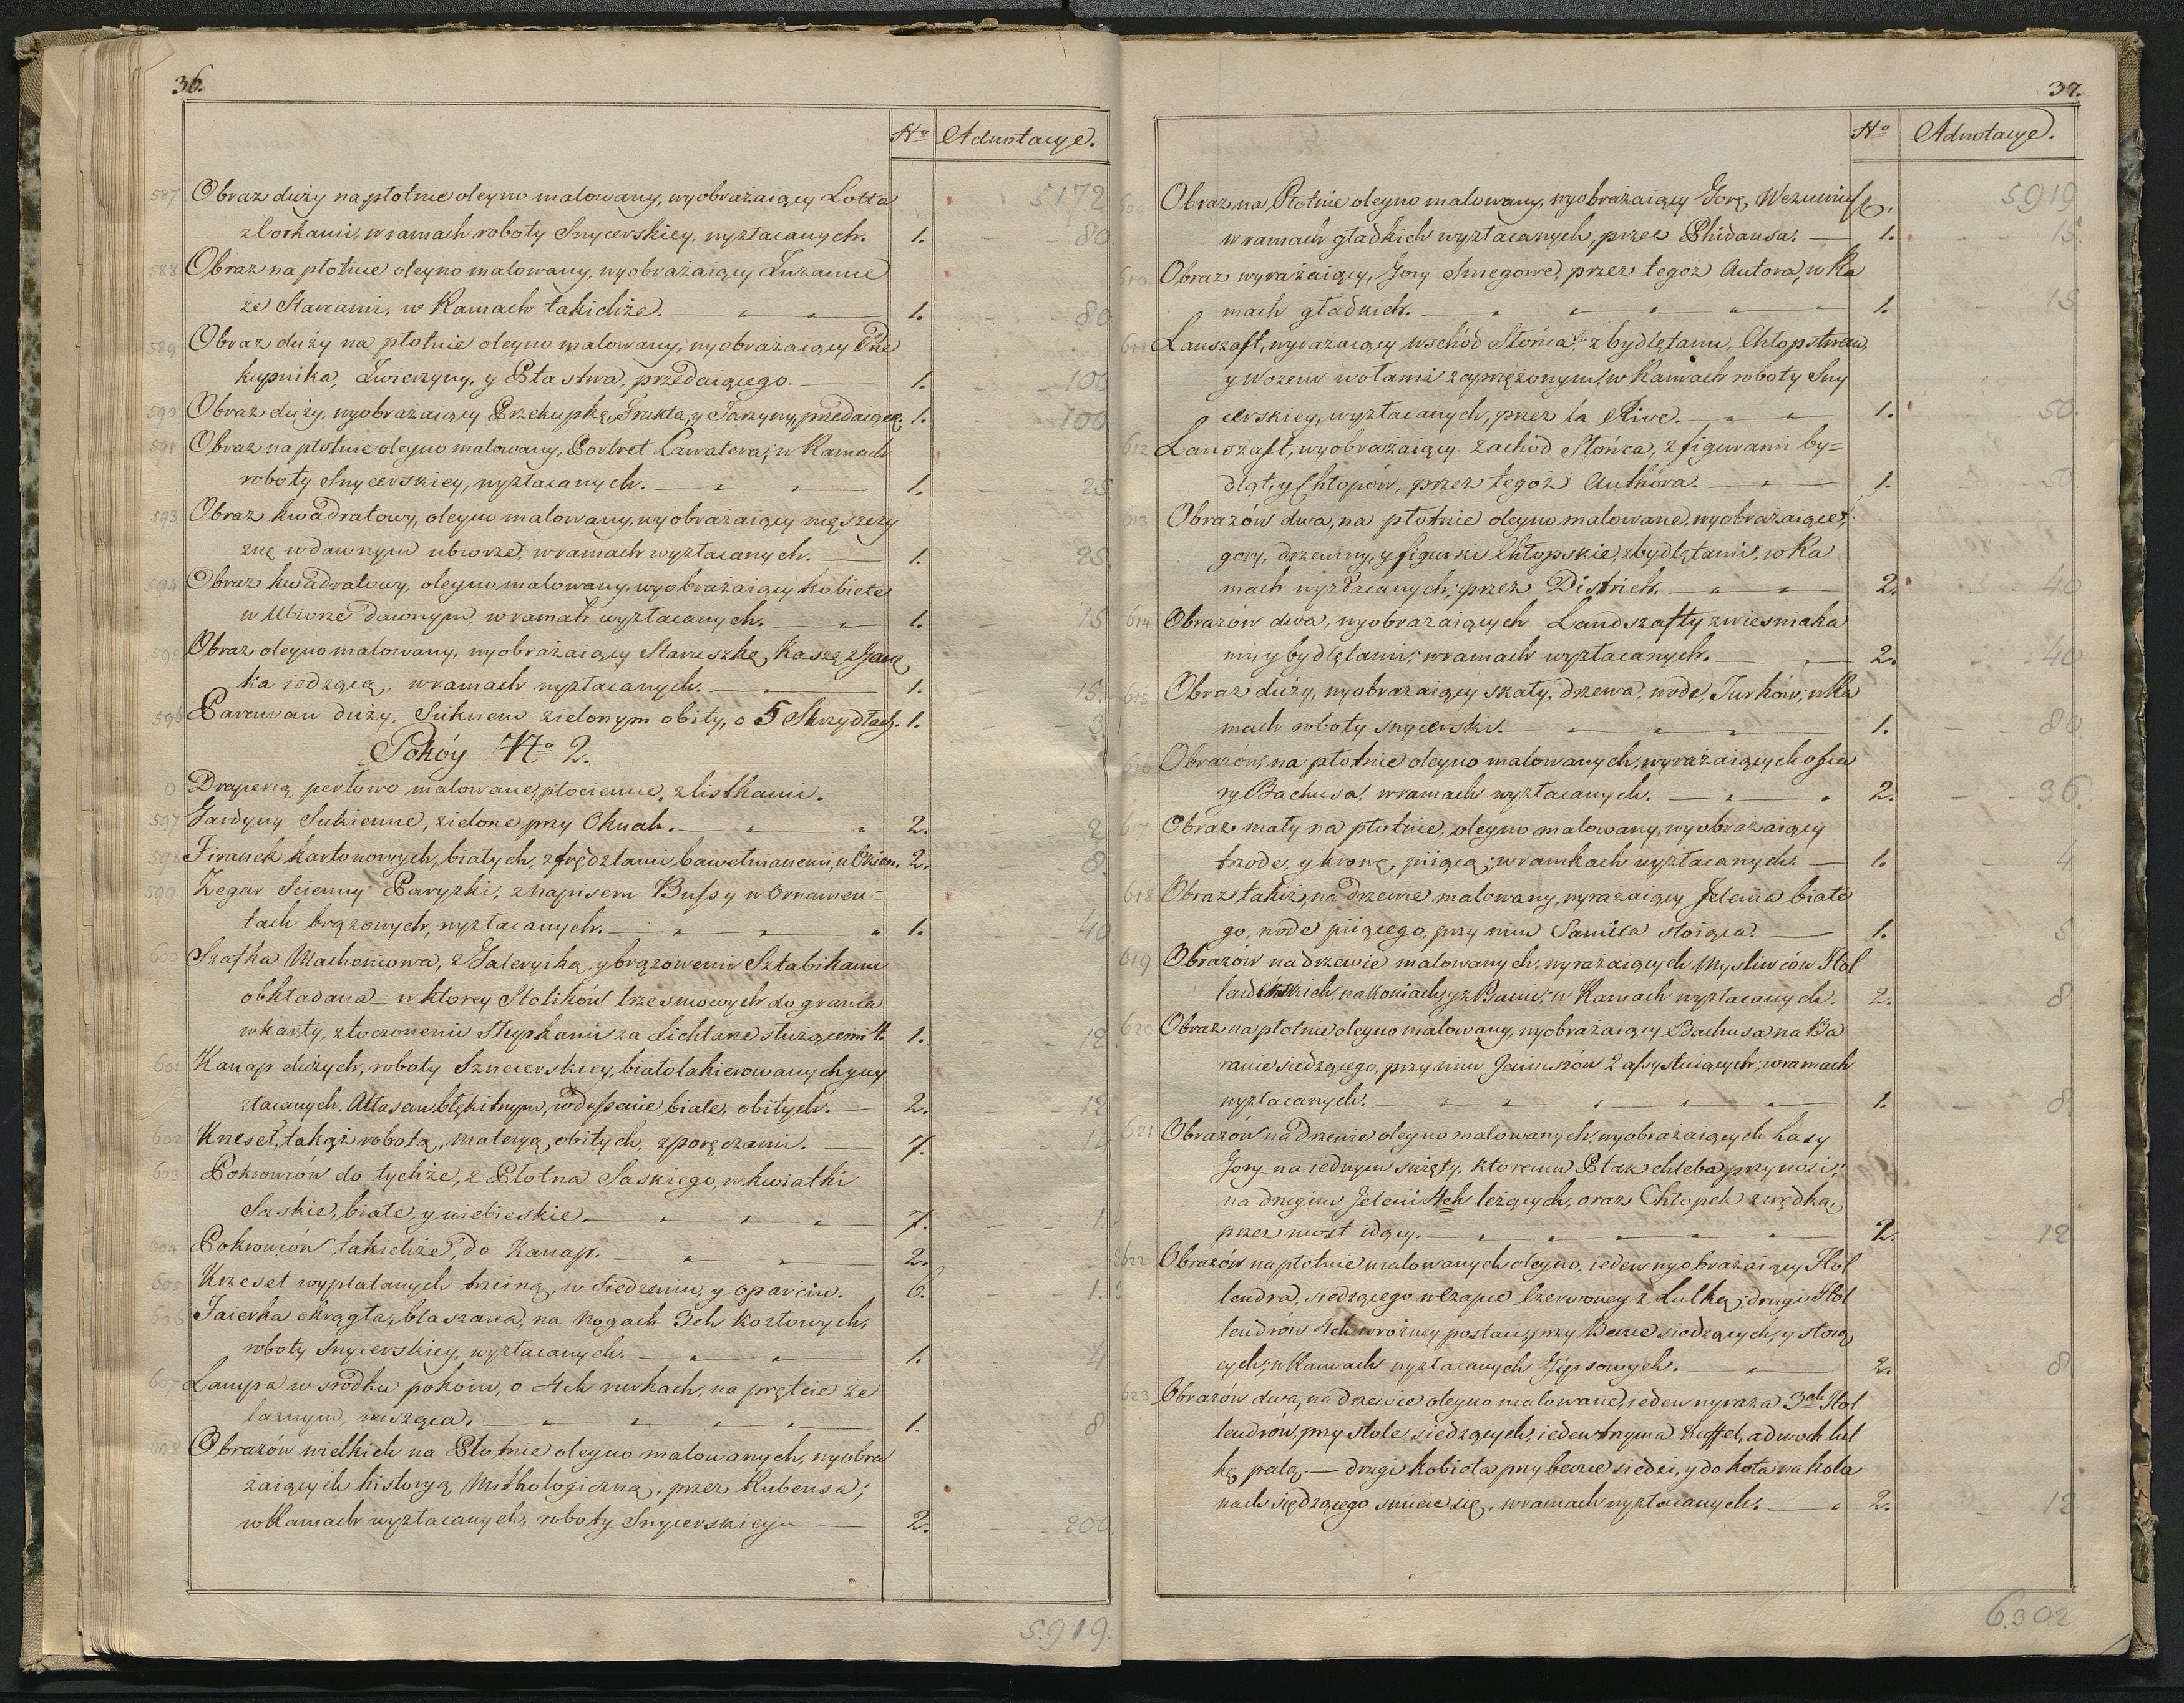 36.
No Adnotacye.
5172
587 Obraz duży na płotnie oleyno malowany, wyobrażaiący Lotta
z Corkami, w ramach roboty Snycerskiey, wyztacanych. 1. 80
588 Obraz na płotnie oleyno malowany, wyobrażaiący Zuzanne
ze Starcami, w Ramach takichże. 1. 80
589 Obraz duży na płotnie oleyno malowany, wyobrażaiący Prze
kupnika, Zwierzyny, y Ptastwa, przedaiącego. 1. 100
590 Obraz duży, wyobrażaiący Przekupkę, Frukta, y Jarzyny, przedaiącę. 1. 100
591 Obraz na płotnie oleyno malowany, Portret Lawatera; w Ramach
roboty Snycerskiey, wyztacanych. 1. 25
593 Obraz kwadratowy, oleyno malowany, wyobrażaiący męszczy
znę w dawnym ubiorze, w ramach wyztacanych. 1. 25
594 Obraz kwadratowy, oleyno malowany, wyobrażaiący kobiete
w Ubiorze dawnym, w ramah wyztacanych. 1. 15
595 Obraz oleyno malowany, wyobrażaiący Staruszkę, Kaszę z Garą
ka iedzącą, w ramach wyztacanych. 1. 15.
596 Parawan duży, Suknem zielonym obity, o 5 Skrzydłach. 1. 3
Pokóy No 2.
0 Draperią perłowo malowane, płocienne, z listkami.
597 Gardyny Sukienne, zielone przy Oknach. 2. 2
598 Firanek kartonowych, białych, z frędzlami bawełnianemi, u Okien. 2. 8
599 Zegar Scienny Paryzki, z Napisem Bussy w Ornamen=
tach brązowych, wyztacanych. 1. 40
600 Szafka Machoniowa, z Galeryiką, y brązowemi Sztabikami
obkładana w ktorey Stolików trzesniowych do grania
w karty, z toczonemi Słupkami za Lichtarze służącemi 4. 1. 12
601 Kanap dużych, roboty Sznycerskiey, biało lakierowanych y wy
ztacanych, Attasem błękitnym, w dessenie białe, obitych. 2. 12
602 Krzeseł, takąż robotą, materyą, obitych, z poręczami. 7. 12
603 Pokrowców do tychże, z Płotna Saskiego, w kwiatki
Saskie, białe, y niebieskie. 7. 1.
604 Pokrowców takichże, do Kanap. 2.
605 Krzeseł wyplatanych trziną, w Siedzeniu, y oparciu. 6. 1.
606 Faierka okrągła, blaszana, na Nogach 3ch Kozłowych,
roboty Snycerskiey, wyztacanych. 1. 4
607 Lampa w srodku pokoiu, o 4ch rurkach, na pręcie że
laznym, wisząca. 1. 8
608 Obrazów wielkich na Płotnie oleyno malowanych, wyobra
żaiących historyą Mithologiczną, przez Rubensa;
w Ramach wyztacanych, roboty Snycerskiey 2. 200
5.919.
37.
No Adnotacye.
5919
609 Obraz na Płotnie oleyno malowany, wyobrażaiący Gorę, Wezuwiusz
w ramach gładkich wyztacanych, przez Phidansa. 1. 15
610 Obraz wyrażaiący, Gory Sniegowe, przez tegoż Autora, w Ra
mach gładkich. 1. 15
611 Lanszaft, wyrażaiący wschód Słońca, z bydlętami, Chłopstwem,
y Wozem wołami zaprzężonym, w Ramach roboty Sny
cerskiey, wyztacanych, przez la Rive. 1. 50.
612 Lanszaft, wyobrażaiący zachód Słońca, z figurami by=
dląt, y Chłopów, przez tegoż Authora. 1. 50
613 Obrazów dwa, na płotnie oleyno malowane, wyobrażaiące,
gory, drzewiny, y figurki Chłopskie, z bydlętami, w Ra
mach wyztacanych; przez Districh. 2. 40
614 Obrazów dwa, wyobrażaiących Landszafty z wiesniaka
mi, y bydlętami; w ramach wyztacanych. 2. 40
615 Obraz duży, wyobrażaiący skały, drzewa, wode, Turków; w Ra
mach roboty snycerski. 1. 80
616 Obrazów, na płotnie oleyno malowanych, wyrażaiących ofia
ry Bachusa, w ramach wyztacanych. 2. 36.
617 Obraz mały na płotnie, oleyno malowany, wyobrażaiący
trzode, y krowę, piiącą; w ramkach wyztacanych. 1. 4
618 Obraz takiż, na drzewie malowany, wyrażaiący Jelenia białe
go, wode piiącego, przy nim Samica stoiąca. 1. 5
619 Obrazów na drzewie malowanych, wyrażaiących Mysliwców Hol
lenderskich, na koniach, y z Psami; w Ramach wyztacanych. 2. 8
620 Obraz na płotnie oleyno malowany, wyobrażaiący Bachusa na Ba
ranie siedzącego, przy nim Jeniuszów 2 assystuiących; w ramach
wyztacanych. 1. 8.
621 Obrazów na drzewie oleyno malowanych, wyobrażaiących Lasy
Gory na iednym swięty, ktoremu Ptak chleba przynosi;
na drugim Jeleni 4ch leżących, oraz Chłopek z wędką,
przez most idący. 2. 12
622 Obrazów na płotnie malowanych oleyno, ieden wyobrażaiący Hol
lendra, siedzącego w Czapce Czerwoney z Lulką; drugi Hol
lendrów 4ch w rożney postaci, przy Becze siedzących, y stoią
cych; w Ramach wyztacanych Gipsowych. 2. 8
623 Obrazów dwa, na drzewie oleyno malowane, ieden wyraża 3ch Hol
lendrów, przy stole siedzących, ieden trzyma Kuffel, a dwoch lul
kę palą. — drugi kobieta przy becze siedzi, y do kota na kola
nach siędzącego smieie się, w ramach wyztacanych. 2. 12
6302